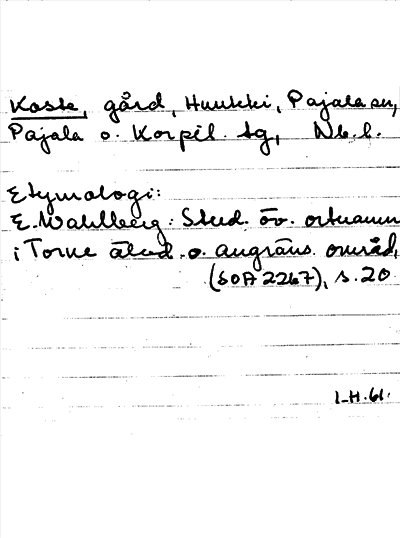 Koste, gård, Huukki, Pajala sn,
Pajala o. Korpil. tg, Nb. l.
Etymologi:
E. Wahlberg: Stud. öv. ortnamn
i Torne älvd. o. angräns. områd.
(SOA 2267), s. 20
I.H. 61.